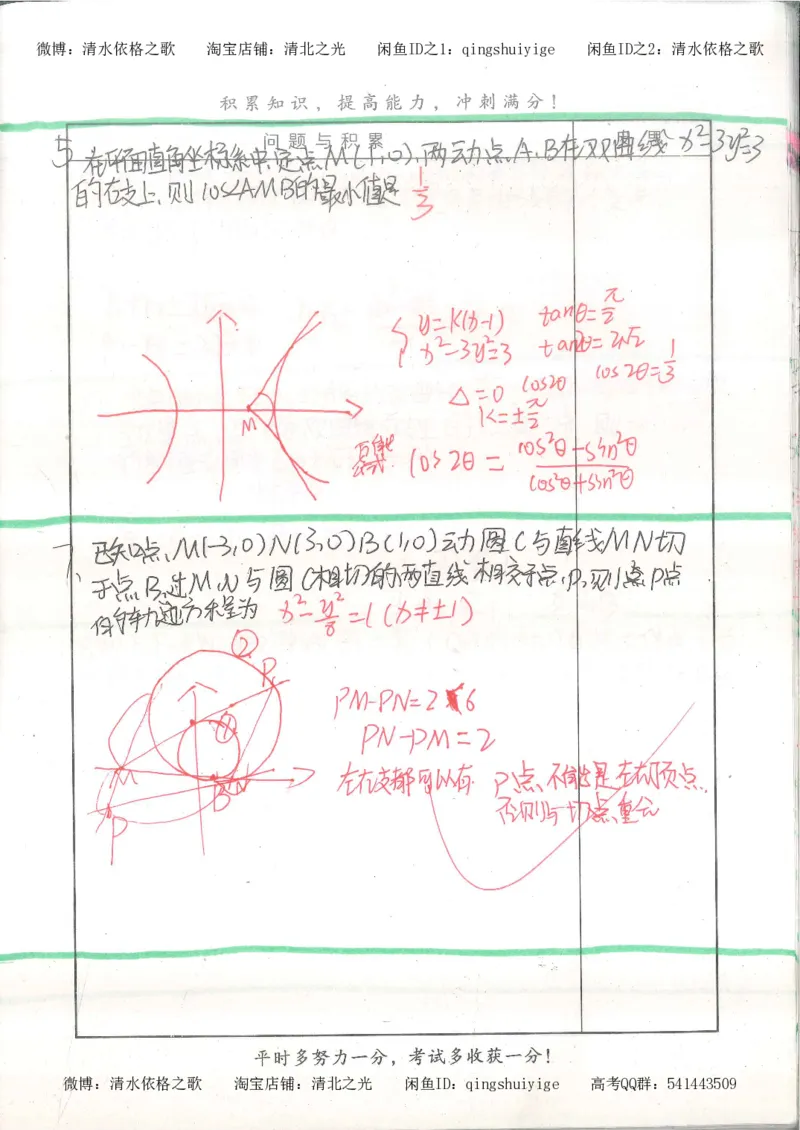 微博：清水依格之歌 淘宝店铺：清北之光 闲鱼ID之1：qingshuiyige 闲鱼ID之2：清水依格之歌
积累知识，提高能力，冲刺满分！
问题与积累
5 在平面直角坐标系中,定点M(1,0),两动点,A、B在双曲线x²-3y²=3
的右支上,则cos<AMB的最小值是 1/3
y=k(x-1)
x²-3y²=3
Δ=0
tan2θ=2√2
cos2θ
cos2θ=1/3
M
cos2θ= (cos²θ-sin²θ)/(cos²θ+sin²θ)
7、已知点,M(-3,0)N(3,0)B(1,0)动圆C与直线MN切
于点B,过M、N与圆C相切的两直线相交于点,P,则点P点
的轨迹方程为 x²-y²/8=1(x≠±1)
②
P
①
M
B
N
P
PM-PN=2
6
PN-PM=2
左右支都可以有 P点,不能是左右顶点,
否则与切点重合
平时多努力一分，考试多收获一分！
微博：清水依格之歌 淘宝店铺：清北之光 闲鱼ID：qingshuiyige 高考QQ群：541443509